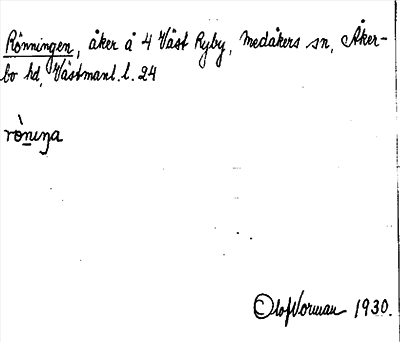 Rönningen, åker å 4 Väst Ryby, Medåkers sn, Åker-
bo hd, Västmanl. l. 24
rò̱nıŋa
Olof Norman 1930.